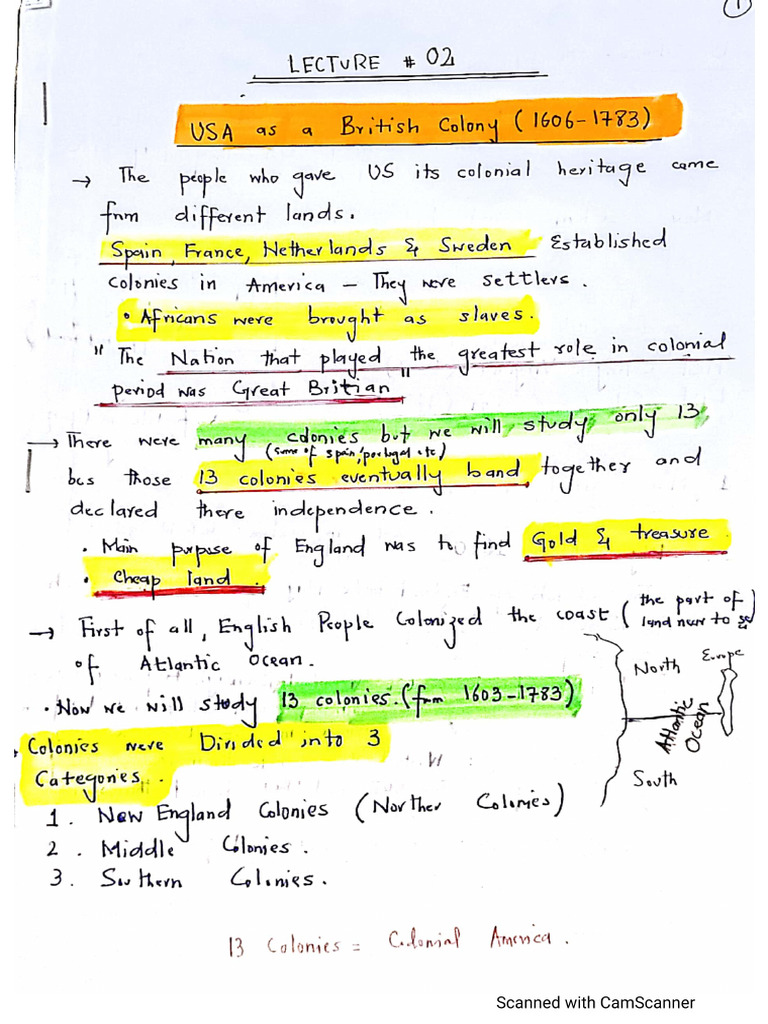 1
LECTURE # 02
USA as a British Colony (1606-1783)
→ The people who gave US its colonial heritage came
from different lands.
Spain, France, Netherlands & Sweden Established
colonies in America – They were settlers.
• Africans were brought as slaves.
" The Nation that played the greatest role in colonial
period was Great Britian "
→ There were many colonies but we will study only 13
(some of spain/portugal etc)
bcs those 13 colonies eventually band together and
declared there independence.
• Main purpose of England was to find Gold & treasure
• Cheap land.
→ First of all, English People Colonized the coast (the part of
land near to sea)
of Atlantic Ocean.
North
Europe
• Now we will study 13 colonies. (from 1603-1783)
Atlantic
Ocean
Colonies were Divided into 3
Categories.
South
1. New England Colonies (Norther Colonies)
2. Middle Colonies.
3. Southern Colonies.
13 Colonies = Colonial America.
Scanned with CamScanner